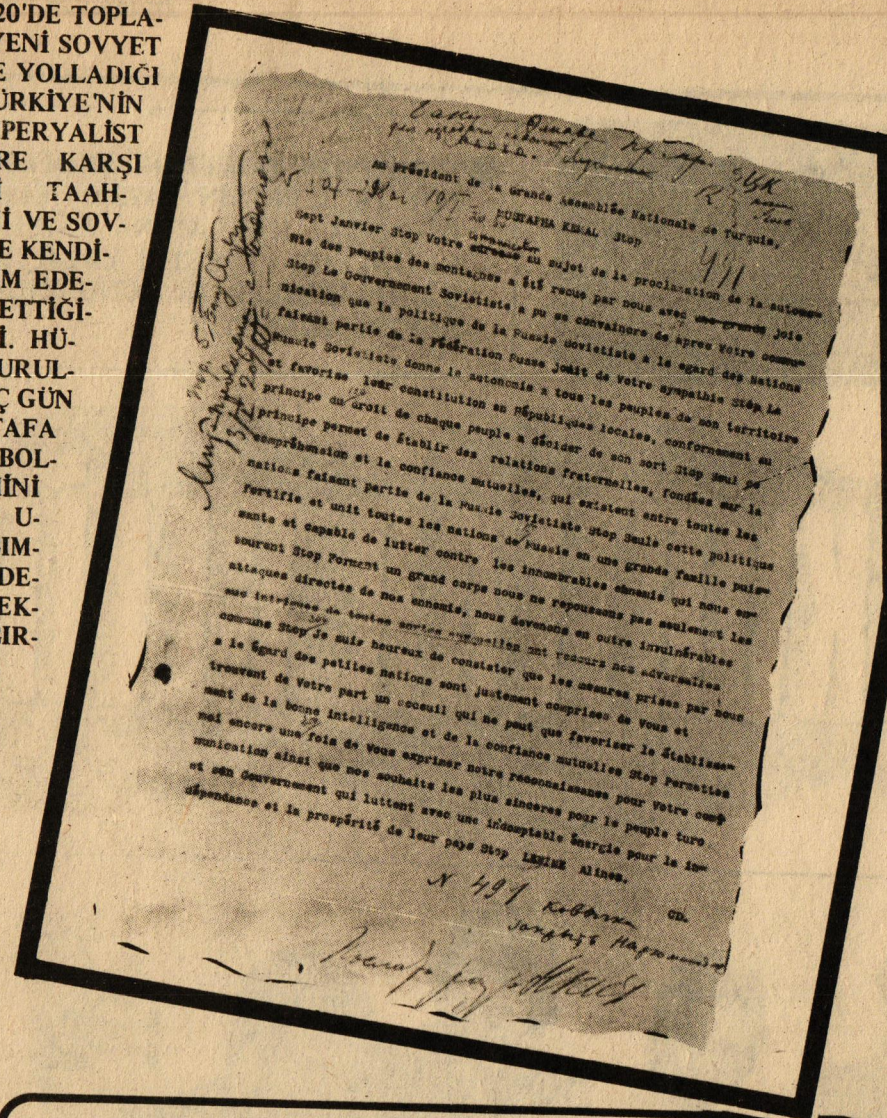 20'DE TOPLA-
YENİ SOVYET
E YOLLADIĞI
ÜRKİYE'NİN
PERYALİST
RE KARŞI
İ TAAH-
İ VE SOV-
E KENDİ-
M EDE-
ETTİĞİ-
İ. HÜ-
URUL-
Ç GÜN
TAFA
BOL-
İNİ
U-
IM-
DE-
EK-
BIR-
Au Président de la Grande Assemblée Nationale de Turquie,
MUSTAPHA KEMAL Stop
Sept Janvier Stop Votre au sujet de la proclamation de la autono-
mie des peuples des montagnes a été recue par nous avec joie
Stop Le Gouvernement Sovietiste a pu se convaincre de apres Votre commu-
nication que la politique de la Russie Sovietiste a le egard des Nations
faisant partie de la Fédération Russe jouit de Votre sympathie Stop La
Russie Sovietiste donne la autonomie a tous les peuples de son territoire
et favorise leur constitution en Républiques locales, conformement au
principe du droit de chaque peuple a décider de son sort Stop Seul ce
principe permet de établir des relations fraternelles, fondées sur la
compréhension et la confiance mutuelles, qui existent entre toutes les
nations faisant partie de la Russie Sovietiste Stop Seule cette politique
fortifie et unit toutes les nations de Russie en une grande famille puis-
sante et capable de lutter contre les innombrables ennemis qui nous en-
tourent Stop Formant un grand corps nous ne repoussons pas seulement les
attaques directes de nos ennemis, nous devenons en outre invulnérables
aux intrigues de toutes sortes auxquelles ont recours nos adversaires
communs Stop Je suis heureux de constater que les mesures prises par nous
a le égard des petites nations sont justement comprises de Vous et
trouvent de Votre part un acceuil qui ne peut que favoriser le établisse-
ment de la bonne intelligence et de la confiance mutuelles Stop Permettez
moi encore une fois de Vous exprimer notre reconnaissance pour Votre com-
munication ainsi que nos souhaits les plus sinceres pour le peuple turc
et son Gouvernement qui luttent avec une indomptable énergie pour la in-
dépendance et la prospérité de leur pays Stop LENINE Alinea.
N 491